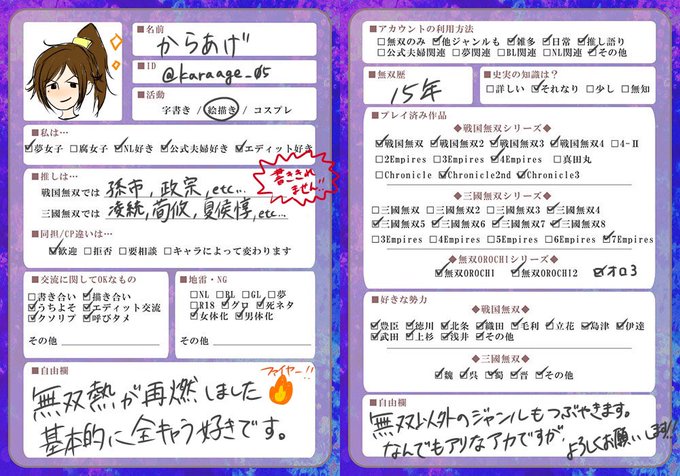 ■名前
からあげ
■ID
@karaage_05
■活動
字書き / 絵描き / コスプレ
■私は…
☑夢女子 □腐女子 ☑NL好き ☑公式夫婦好き ☑エディット好き
■推しは…
書ききれません!!
戦国無双では 孫市,政宗,etc…
三國無双では 凌統,荀攸,夏侯惇,etc…
■同担/CP違いは…
☑歓迎 □拒否 □要相談 □キャラによって変わります
■交流に関してOKなもの
□書き合い ☑描き合い
☑うちよそ ☑エディット交流
☑クソリプ ☑呼びタメ
その他
■地雷・NG
□NL □BL □GL □夢
□R18 ☑グロ ☑死ネタ
☑女体化 ☑男体化
その他
■自由欄
ファイヤー!!
無双熱が再燃しました
基本的に全キャラ好きです。
■アカウントの利用方法
□無双のみ ☑他ジャンルも ☑雑多 ☑日常 ☑推し語り
□公式夫婦関連 □夢関連 □BL関連 □NL関連 ☑その他
■無双歴
15年
■史実の知識は?
□詳しい ☑それなり □少し □無知
■プレイ済み作品
◆戦国無双シリーズ◆
☑戦国無双 ☑戦国無双2 ☑戦国無双3 ☑戦国無双4 □4-Ⅱ
□2Empires □3Empires ☑4Empires □真田丸
□Chronicle ☑Chronicle2nd ☑Chronicle3
◆三國無双シリーズ◆
□三國無双 □三國無双2 □三國無双3 ☑三國無双4
☑三國無双5 ☑三國無双6 ☑三國無双7 ☑三國無双8
□3Empires □4Empires □5Empires □6Empires ☑7Empires
◆無双OROCHIシリーズ◆
☑無双OROCHI ☑無双OROCHI2 ☑オロ3
■好きな勢力
◆戦国無双◆
☑豊臣 ☑徳川 ☑北条 ☑織田 ☑毛利 ☑立花 ☑島津 ☑伊達
☑武田 ☑上杉 ☑浅井 ☑その他
◆三國無双◆
☑魏 ☑呉 ☑蜀 ☑晋 ☑その他
■自由欄
無双以外のジャンルもつぶやきます。
なんでもアリなアカですがよろしくお願いします!!